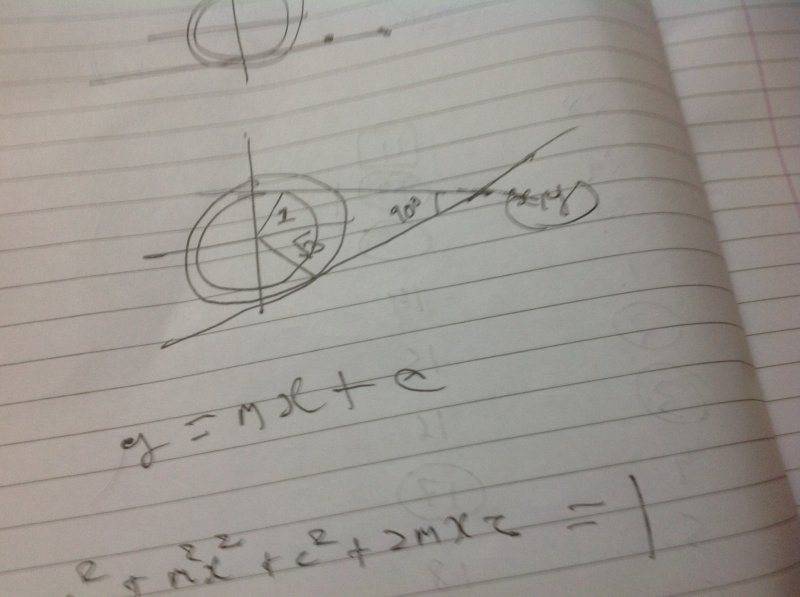 1
90°
y = mx + c
² + m²x² + c² + 2mxc = 1